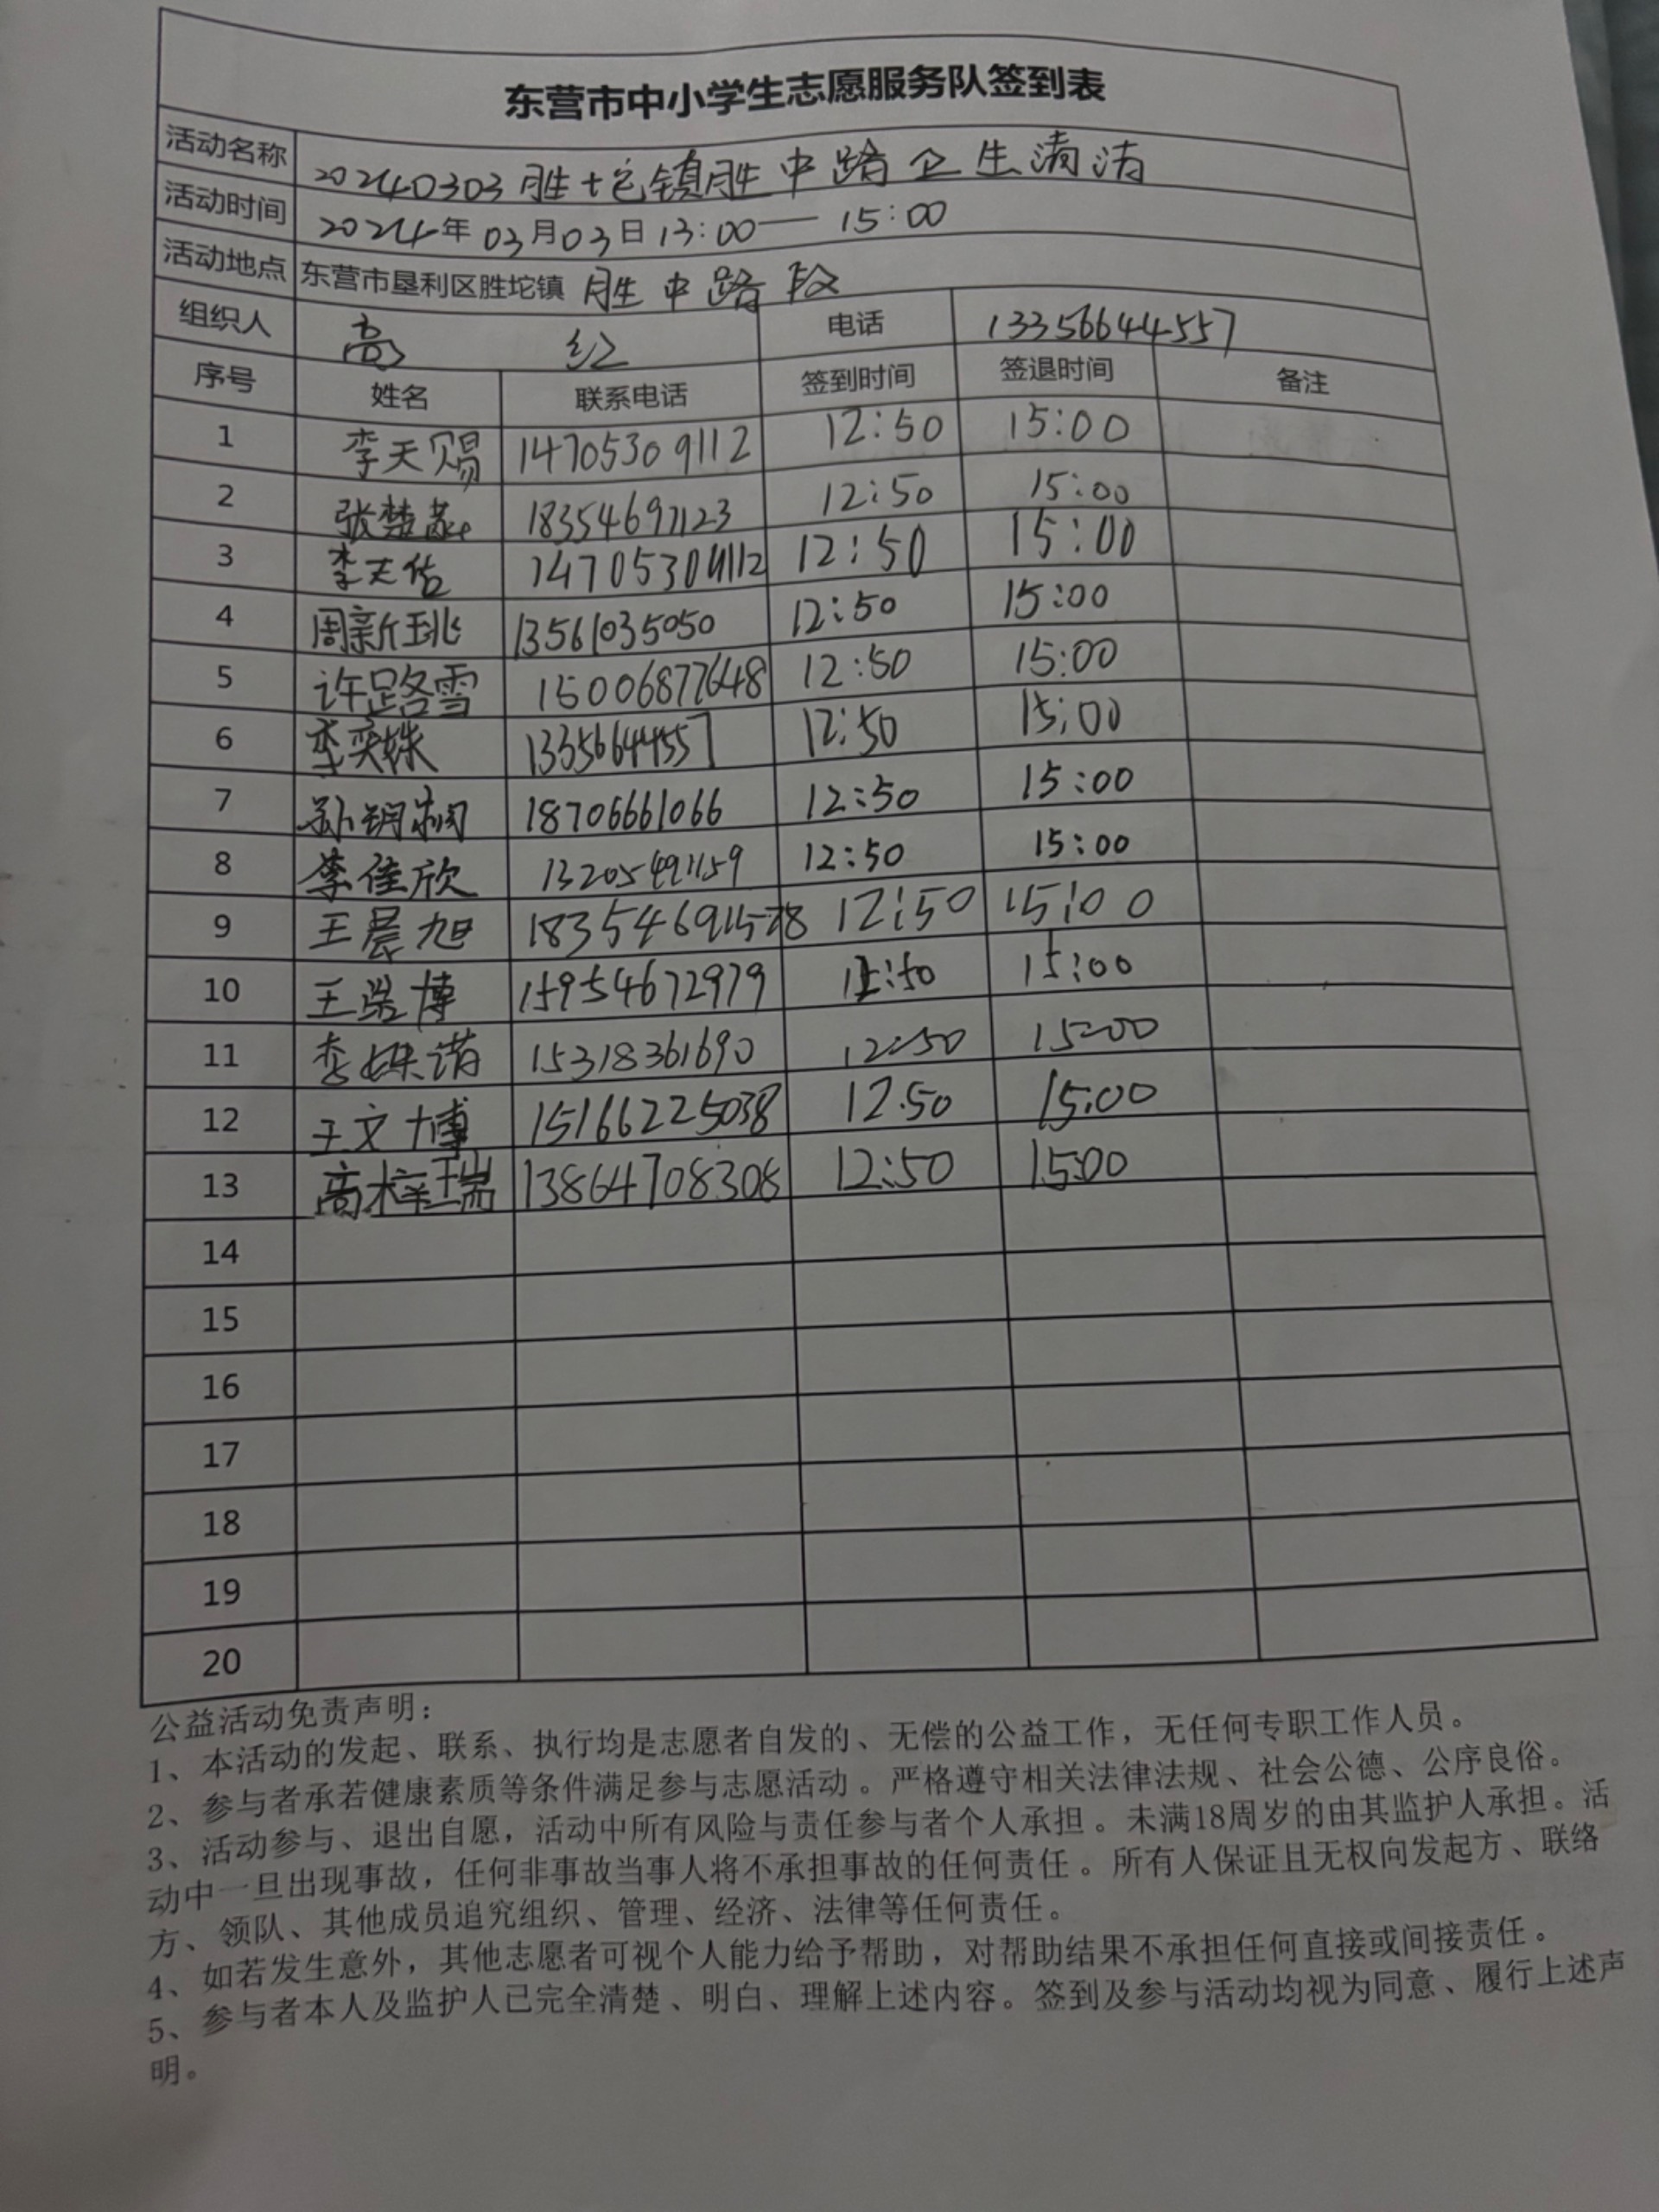 东营市中小学生志愿服务队签到表
活动名称 20240303胜坨镇胜中路卫生清洁
活动时间 2024年03月03日13:00—15:00
活动地点 东营市垦利区胜坨镇 胜中路段
组织人 高红 电话 13356644557
序号 姓名 联系电话 签到时间 签退时间 备注
1 李天赐 14705309112 12:50 15:00
2 张楚 18354691123 12:50 15:00
3 李天佑 14705309112 12:50 15:00
4 周新珧 13561035050 12:50 15:00
5 许路雪 15006877648 12:50 15:00
6 李奕姝 13356644557 12:50 15:00
7 孙钥桐 18706661066 12:50 15:00
8 李佳欣 13205491159 12:50 15:00
9 王晨旭 12:50 15:00
10 王浩博 15954672979 12:50 15:00
11 李姝诺 15318361690 12:50 15:00
12 王文博 15166225038 12.50 15:00
13 高梓瑞 13864708308 12:50 15:00
14
15
16
17
18
19
20
公益活动免责声明：
1、本活动的发起、联系、执行均是志愿者自发的、无偿的公益工作，无任何专职工作人员。
2、参与者承若健康素质等条件满足参与志愿活动。严格遵守相关法律法规、社会公德、公序良俗。
3、活动参与、退出自愿，活动中所有风险与责任参与者个人承担。未满18周岁的由其监护人承担。活
动中一旦出现事故，任何非事故当事人将不承担事故的任何责任。所有人保证且无权向发起方、联络
方、领队、其他成员追究组织、管理、经济、法律等任何责任。
4、如若发生意外，其他志愿者可视个人能力给予帮助，对帮助结果不承担任何直接或间接责任。
5、参与者本人及监护人已完全清楚、明白、理解上述内容。签到及参与活动均视为同意、履行上述声
明。